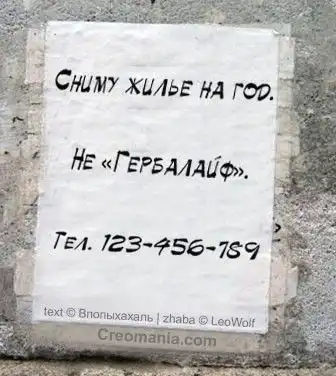 Сниму жилье на год.
Не «Гербалайф».
Тел. 123-456-789
text © Впопыхахаль | zhaba © LeoWolf
Creomania.com